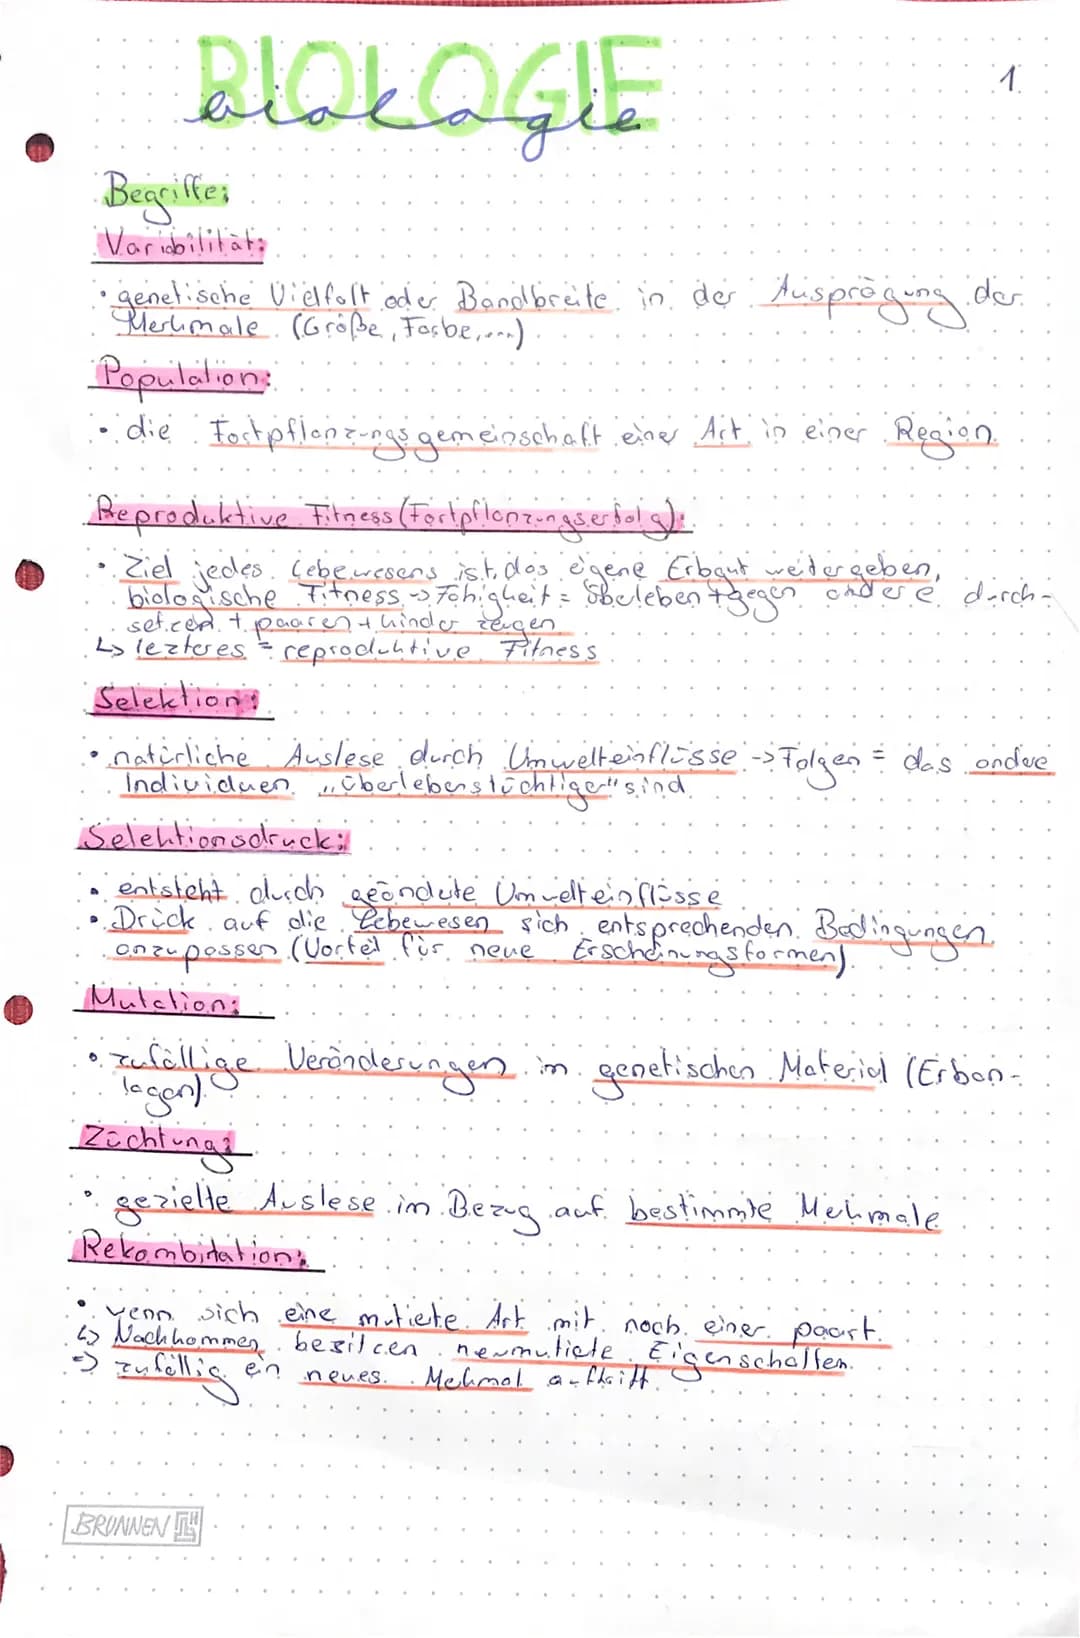 BIOLOGIE
biologie
1
Begriffe:
Variabilität:
• genetische Vielfalt oder Bandbreite in der Ausprägung der
Merkmale (Größe, Farbe,...)
Population:
• die Fortpflanzungsgemeinschaft einer Art in einer Region.
Reproduktive Fitness (Fortpflanzungserfolg):
• Ziel jedes Lebewesens ist, das eigene Erbgut weitergeben,
biologische Fitness -> Fähigkeit = Überleben + gegen andere durch-
setzen + paaren + kinder zeugen
↳ lezteres = reproduktive Fitness
Selektion:
• natürliche Auslese durch Umwelteinflüsse -> Folgen = das andere
Individuen „überlebenstüchtiger" sind
Selektionsdruck:
• entsteht durch geändete Umwelteinflüsse
• Druck auf die Lebewesen sich entsprechenden Bedingungen
anzupassen (Vorteil für neue Erscheinungsformen).
Mutation:
• zufällige Veränderungen im genetischen Material (Erban-
lagen).
Züchtung:
• gezielte Auslese im Bezug auf bestimmte Mekmale
Rekombitation:
• wenn sich eine mutiete Art mit noch einer paart.
↳ Nachkommen besitzen neumutiete Eigenschaften.
=> zufällig ein neues Mekmal auftritt.
BRUNNEN